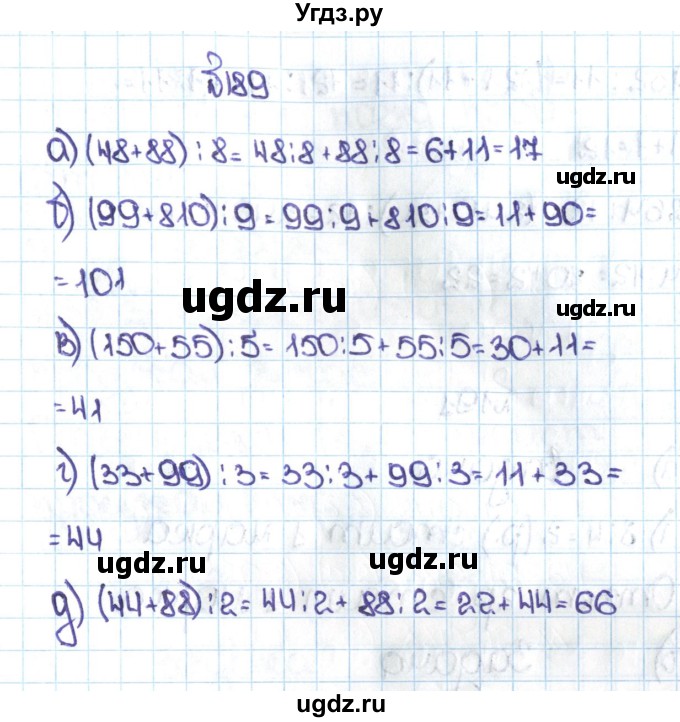 Угдз.ру
№189
а) (48+88):8=48:8+88:8=6+11=17
ugdz.ru
б) (99+810):9=99:9+810:9=11+90=
=101
ugdz.ru
ugdz.ru
в) (150+55):5=150:5+55:5=30+11=
=41
г) (33+99):3=33:3+99:3=11+33=
=44
ugdz.ru
ugdz.ru
д) (44+88):2=44:2+88:2=22+44=66
ugdz.ru
ugdz.ru